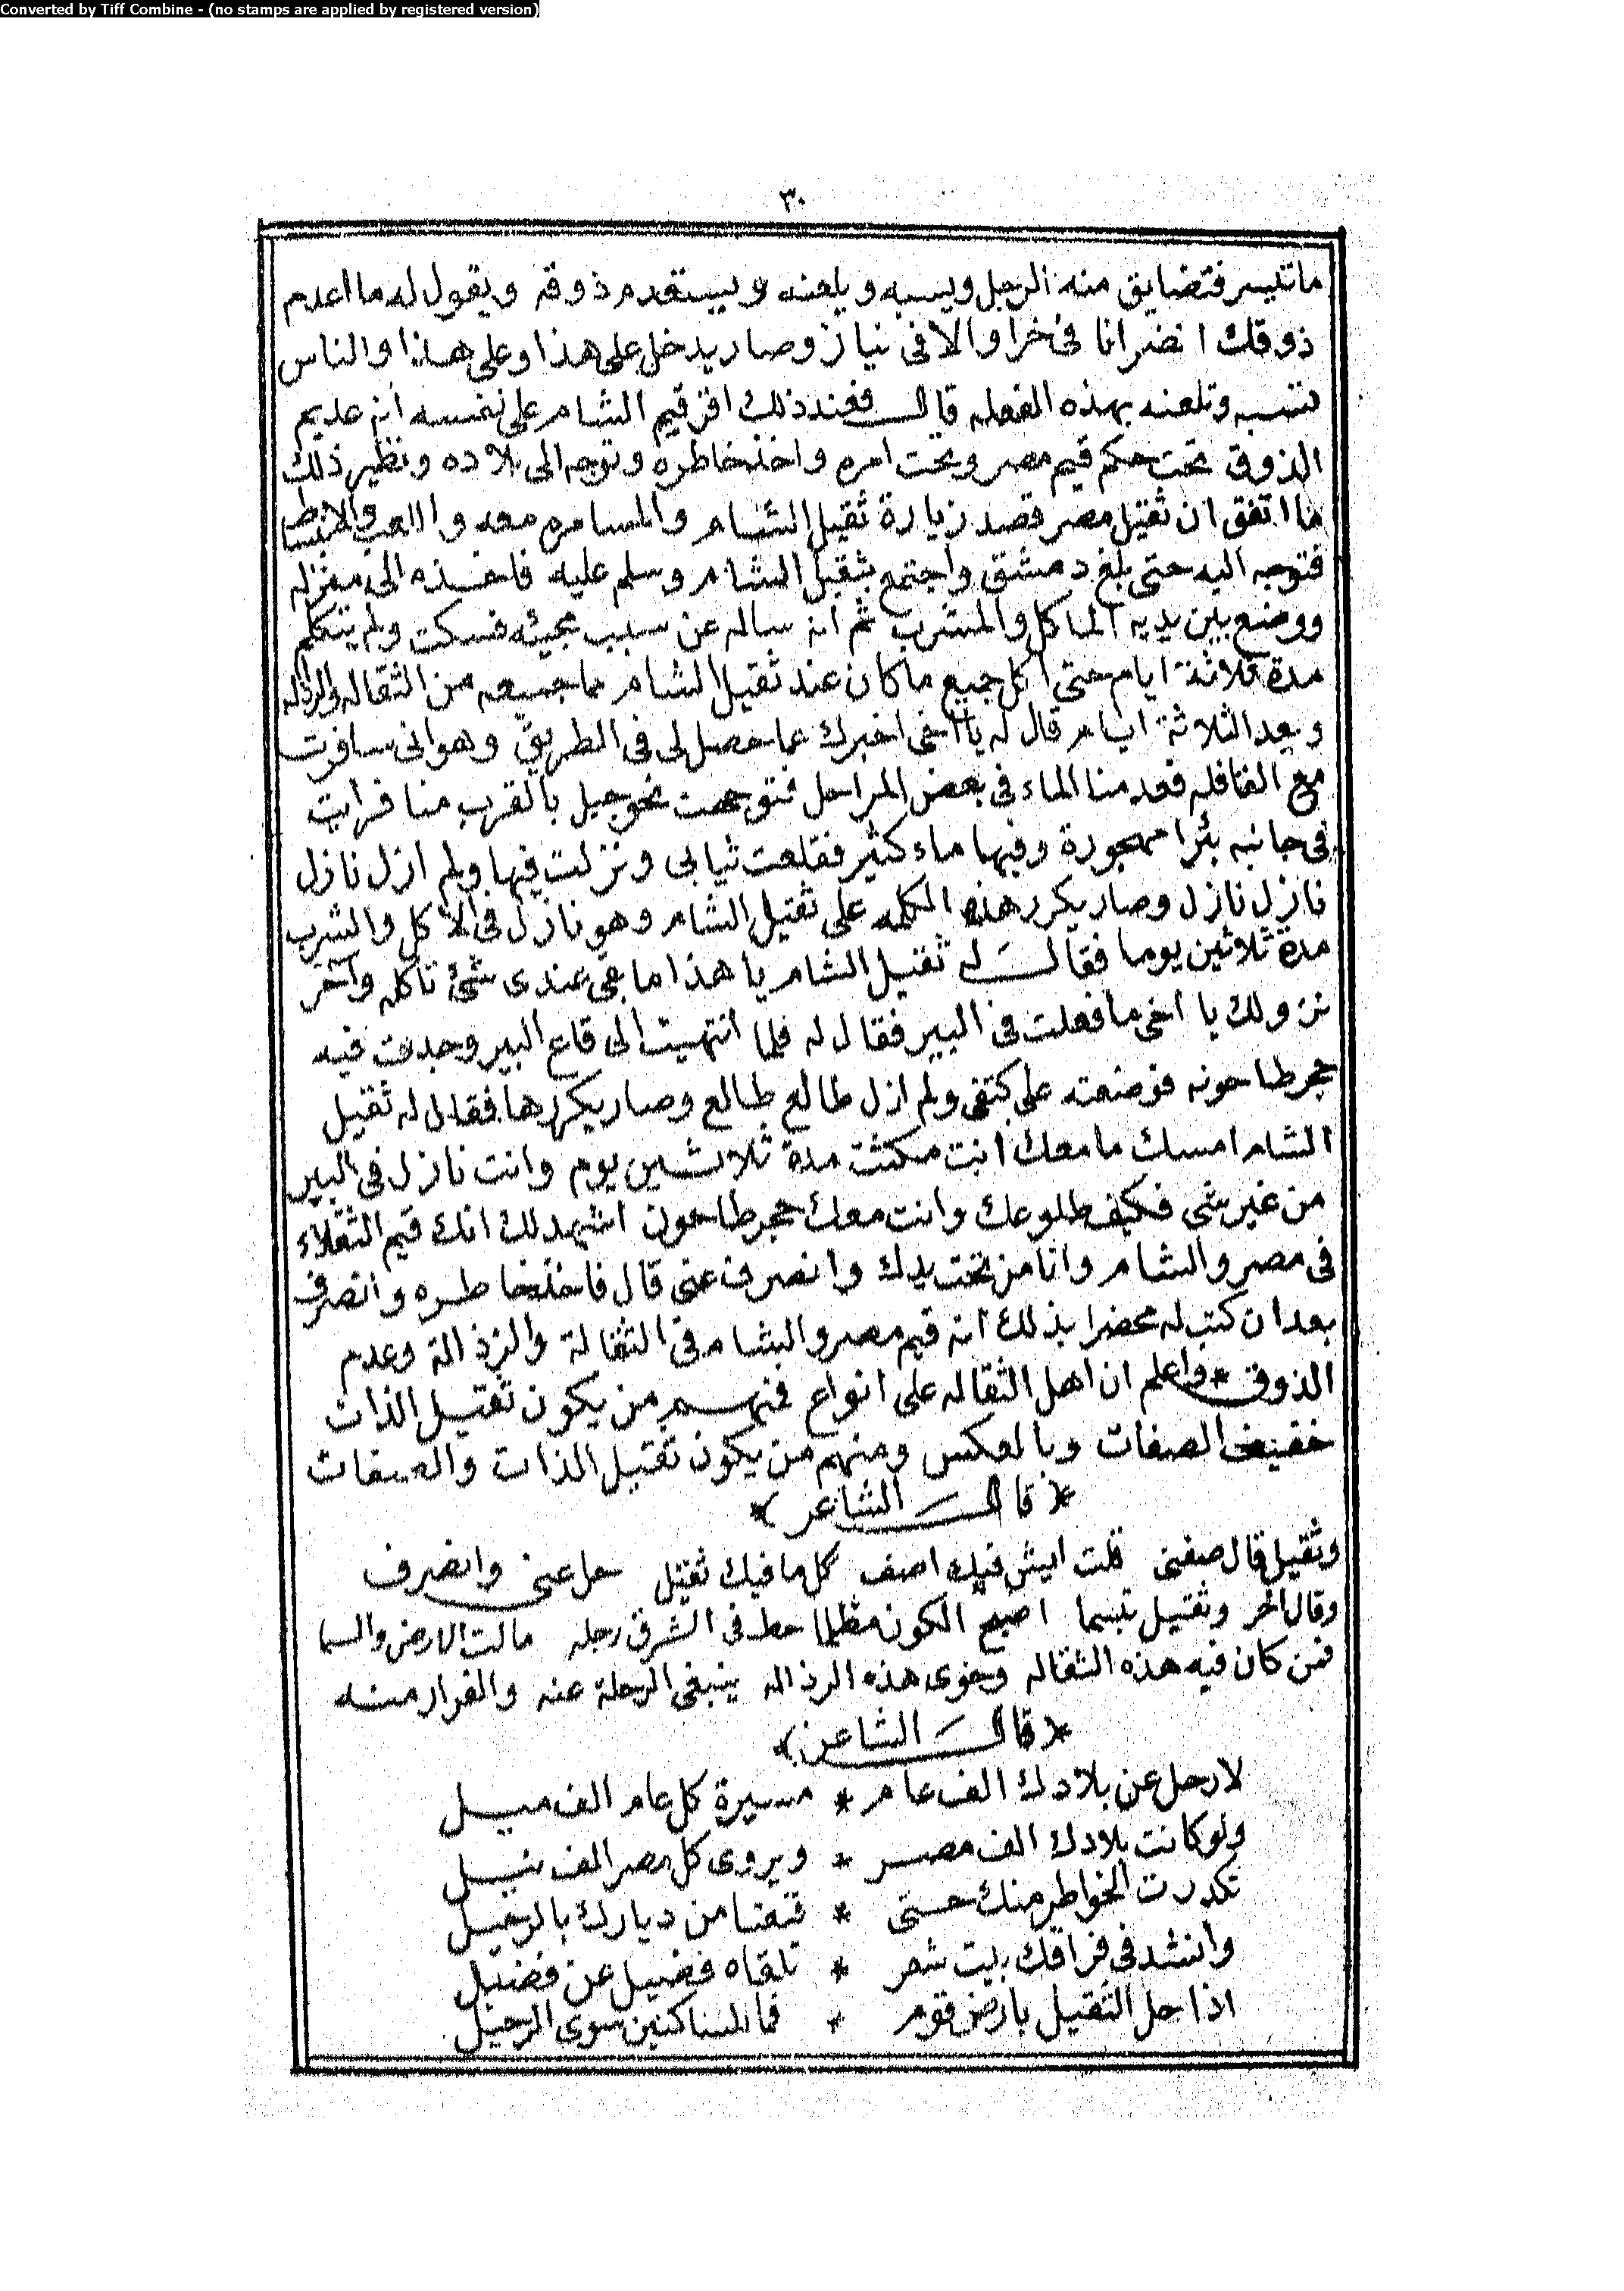 Converted by Tiff Combine - (no stamps are applied by registered version)
٣٠
ما تيسر فتضايق منه الرجل ويسبه ويلعنه ويستقدم ذوقه ويقول له ما اعدم
ذوقك انضر انا فى خرا والا فى نياز وصار يدخل على هذا وعلى هذا والناس
تسبه وتلعنه بهذه الفعله قال فعند ذلك اقر قيم الشام على نفسه انه عديم
الذوق تحت حكم قيم مصر وتحت امره واخذ خاطره وتوجه الى بلاده ونظير ذلك
ما اتفق ان ثقيل مصر قصد زيارة ثقيل الشام والمسامره معه واللعب والانبساط
فتوجه اليه حتى بلغ دمشق واجتمع بثقيل الشام وسلم عليه فاخذه الى منزله
ووضع بين يديه الماكل والمشرب ثم انه ساله عن سبب مجيئه فسكت ولم يتكلم
مدة ثلاثة ايام حتى اكل جميع ما كان عند ثقيل الشام مما جمعه من الثقاله والرذاله
وبعد الثلاثة ايام قال له يا اخى اخبرك عما حصل لى فى الطريق وهو انى سافرت
مع القافله فعدمنا الماء فى بعض المراحل فتوجهت نحو جبل بالقرب منا فرايت
فى جانبه بئرا مهجورة وفيها ماء كثير فقلعت ثيابى ونزلت فيها ولم ازل نازل
نازل نازل وصار يكرر هذه الكلمه على ثقيل الشام وهو نازل فى الاكل والشرب
مدة ثلاثين يوما فقال له ثقيل الشام يا هذا ما بقى عندى شئ تاكله وآخر
نزولك يا اخى ما فعلت فى البير فقال له فلما انتهيت الى قاع البير وجدت فيه
حجر طاحونه فوضعته على كتفى ولم ازل طالع طالع وصار يكررها فقال له ثقيل
الشام امسك ما معك انت مكثت مدة ثلاثين يوم وانت نازل فى البير
من غير شى فكيف طلوعك وانت معك حجر طاحون اشهد لك انك قيم الثقلاء
فى مصر والشام وانا من تحت يدك وانصرف عنى قال فاخذ خاطره وانصرف
بعد ان كتب له محضرا بذلك انه قيم مصر والشام فى الثقالة والرذالة وعدم
الذوق * واعلم ان اهل الثقاله على انواع فمنهم من يكون ثقيل الذات
خفيف الصفات وبالعكس ومنهم من يكون ثقيل الذات والصفات
* قال الشاعر *
وثقيل قال صفنى قلت ايش فيك اصف كل ما فيك ثقيل حل عنى وانصرف
وقال اخر وثقيل تبسما اصبح الكون مظلما حط فى الشرق رجله مالت الارض والسما
فمن كان فيه هذه الثقاله وحوى هذه الرذاله ينبغى الرحلة عنه والفرار منه
* قال الشاعر *
لارحل عن بلادك الف عام * مسيرة كل عام الف ميل
ولو كانت بلادك الف مصر * ويروى كل مصر الف نيل
تكدرت الخواطر منك حتى * قنعنا من ديارك بالرحيل
وانشد فى فراقك بيت شعر * تلقاه فضيل عن فضيل
اذا حل الثقيل بارض قوم * فما للساكنين سوى الرحيل